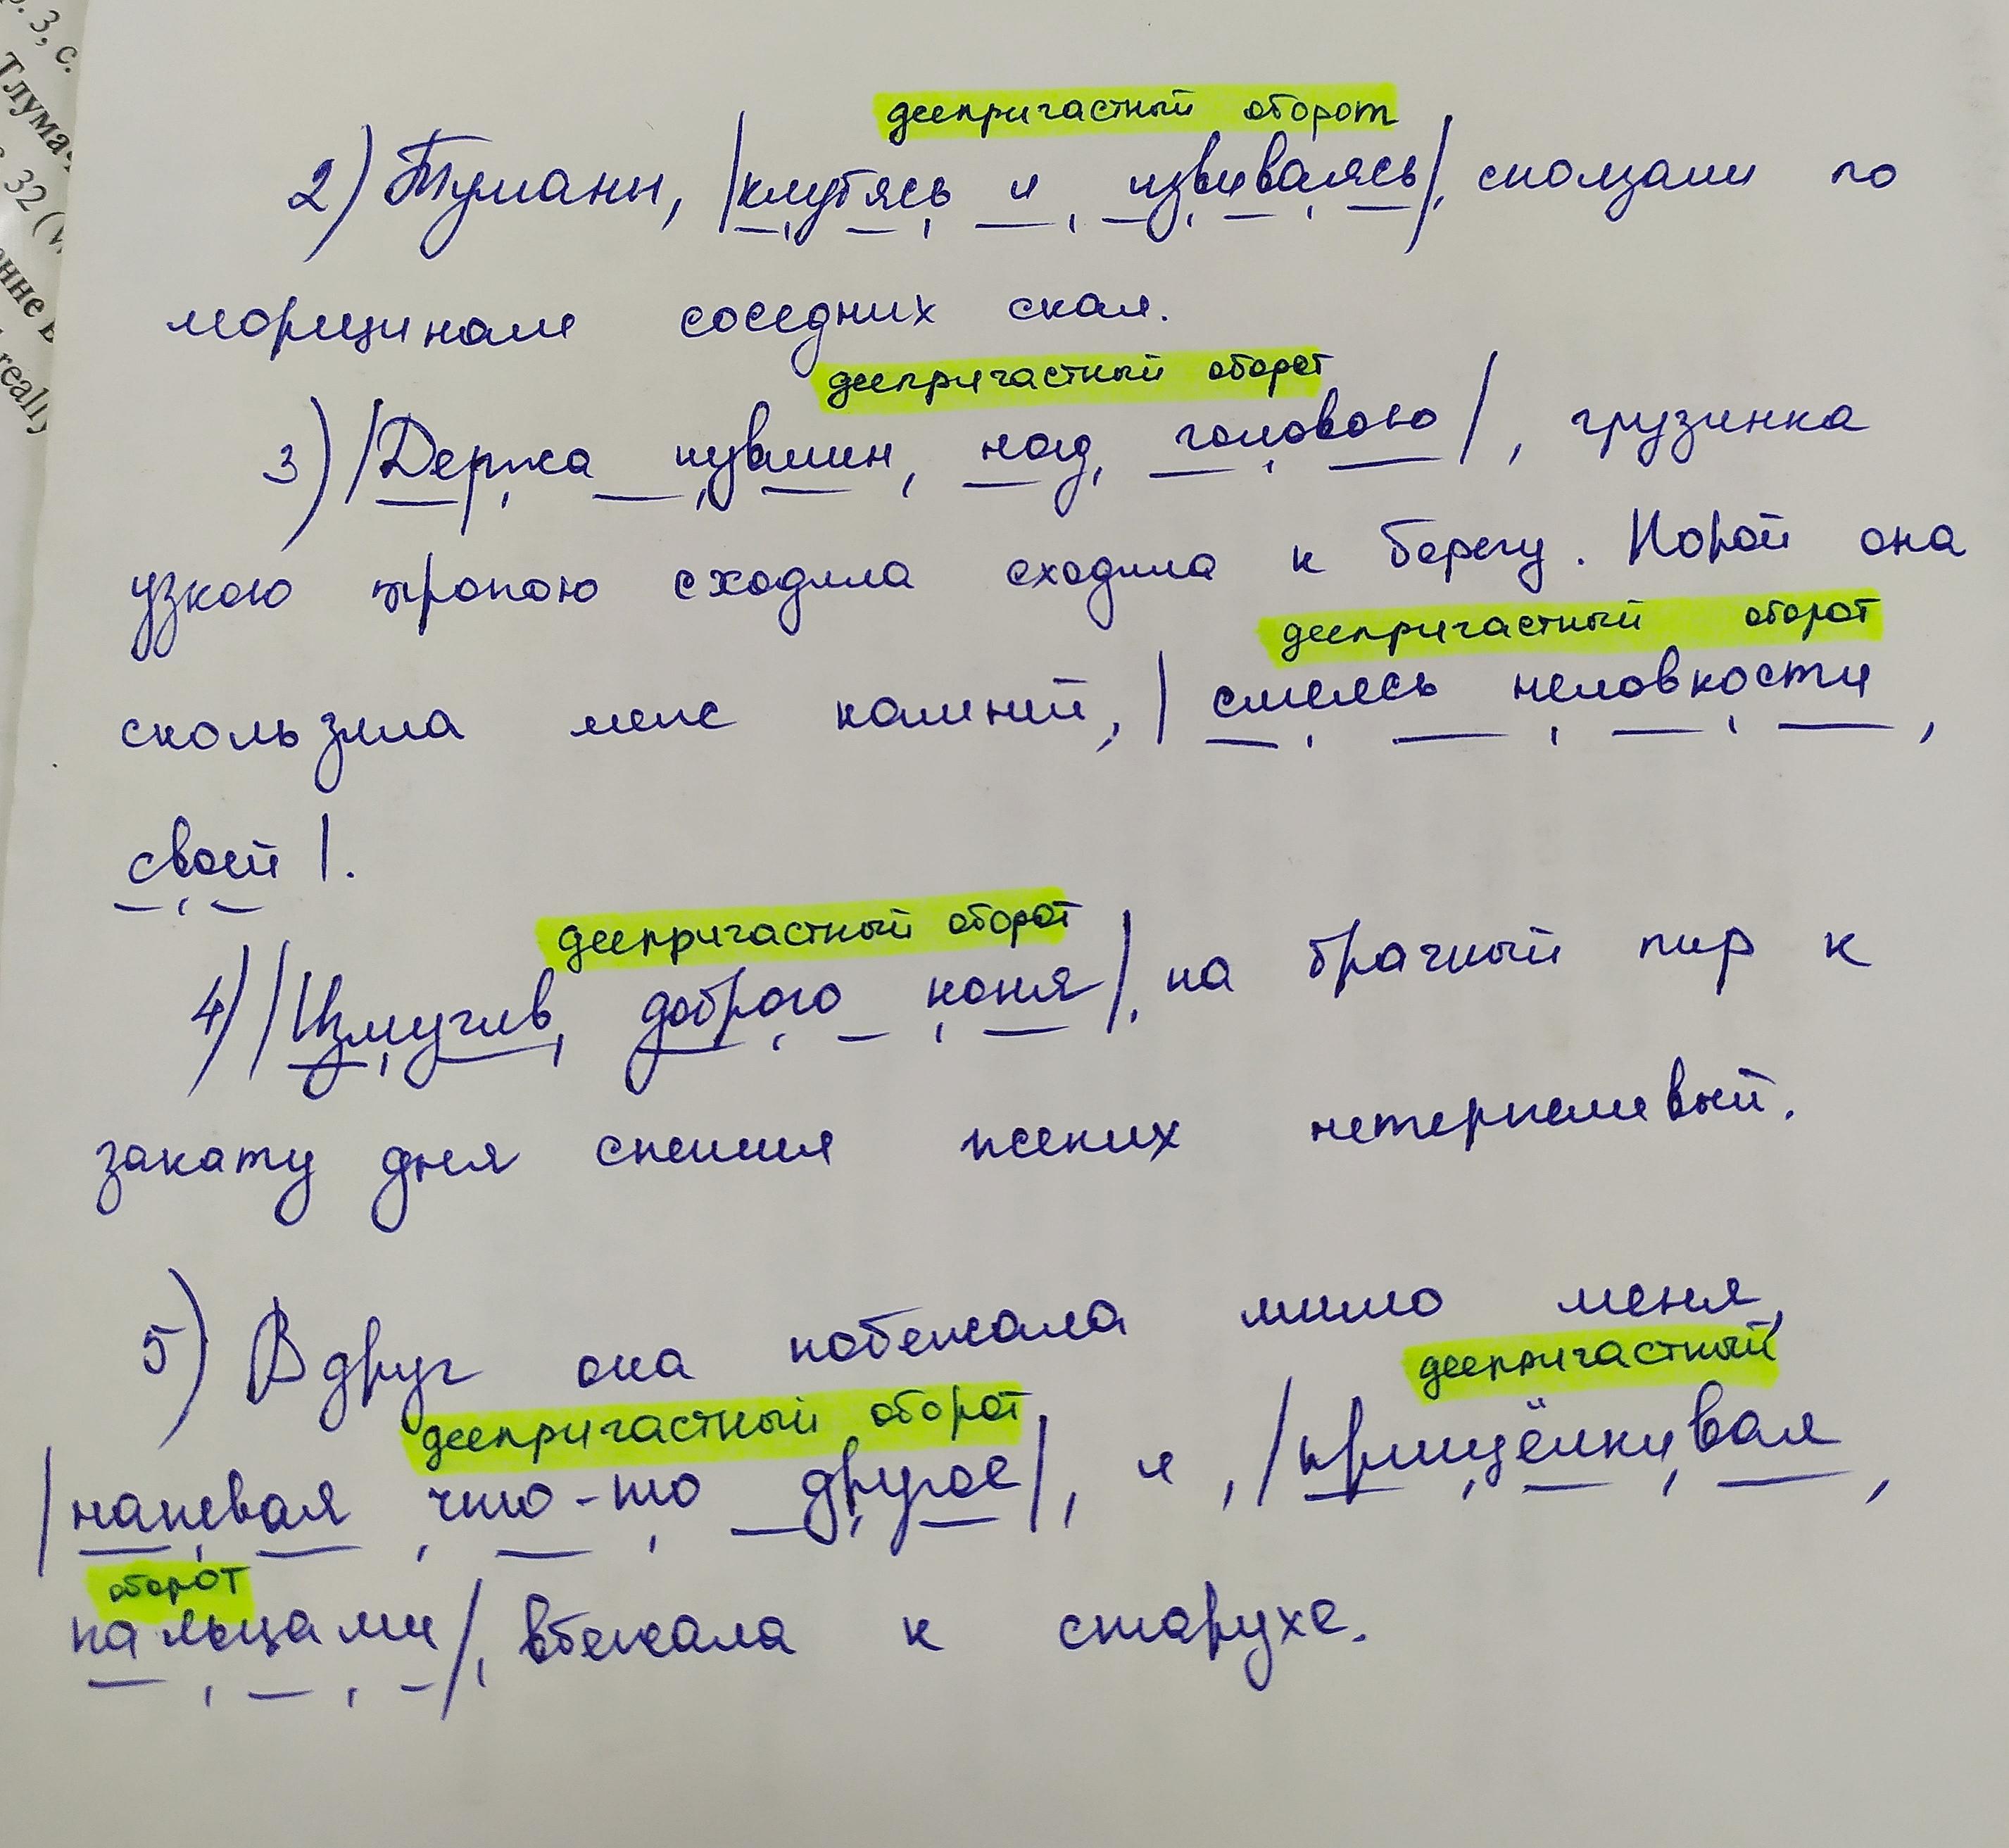 . 3, с.
Тлумач
32 (
анне в
real
деепричастный оборот
2) Туманы, |клубясь и извиваясь|, сползали по
морщинам соседних скал.
деепричастный оборот
3) |Держа кувшин над головою|, грузинка
узкою тропою сходила сходила к берегу. Порой она
деепричастный оборот
скользила меж камней, | смеясь неловкости
своей |.
деепричастный оборот
4) |Измучив доброго коня|, на брачный пир к
закату дня спешил жених нетерпеливый.
5) Вдруг она побежала мимо меня,
деепричастный оборот деепричастный
|напевая что-то другое|, и, |прищёлкивая
оборот
пальцами|, вбежала к старухе.